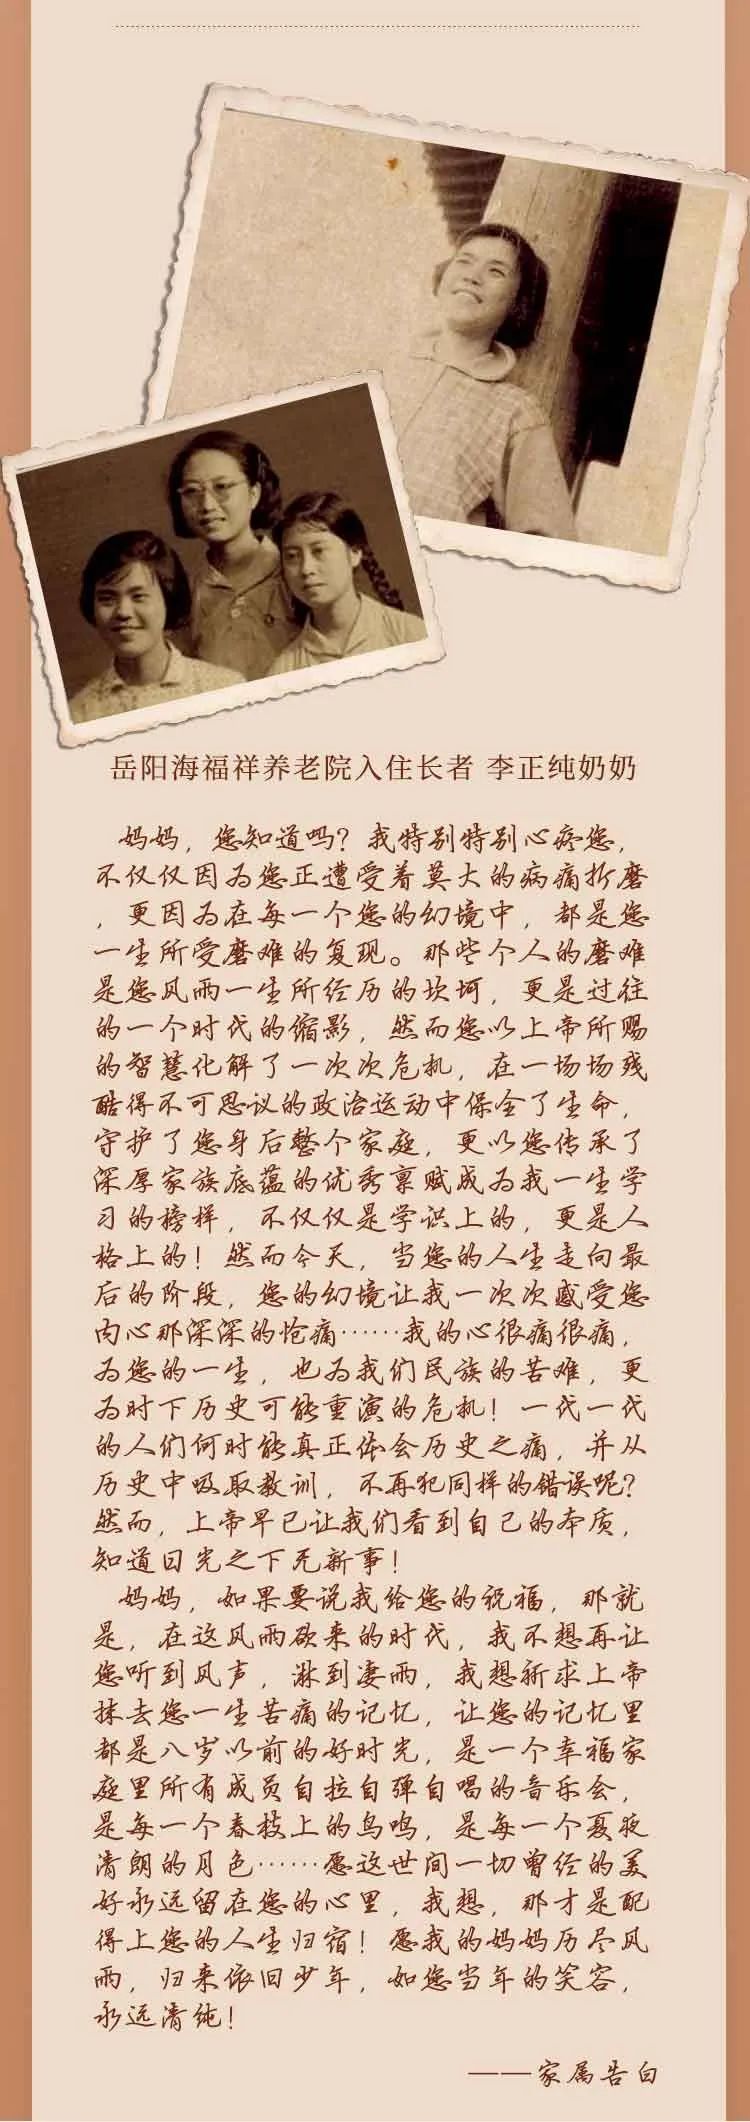 岳阳海福祥养老院入住长者 李正纯奶奶
妈妈，您知道吗？我特别特别心疼您，
不仅仅因为您正遭受着莫大的病痛折磨
，更因为在每一个您的幻境中，都是您
一生所受磨难的复现。那些个人的磨难
是您风雨一生所经历的坎坷，更是过往
的一个时代的缩影，然而您以上帝所赐
的智慧化解了一次次危机，在一场场残
酷得不可思议的政治运动中保全了生命，
守护了您身后整个家庭，更以您传承了
深厚家族底蕴的优秀禀赋成为我一生学
习的榜样，不仅仅是学识上的，更是人
格上的！然而今天，当您的人生走向最
后的阶段，您的幻境让我一次次感受您
内心那深深的怆痛……我的心很痛很痛，
为您的一生，也为我们民族的苦难，更
为时下历史可能重演的危机！一代一代
的人们何时能真正体会历史之痛，并从
历史中吸取教训，不再犯同样的错误呢？
然而，上帝早已让我们看到自己的本质，
知道日光之下无新事！
妈妈，如果要说我给您的祝福，那就
是，在这风雨欲来的时代，我不想再让
您听到风声，淋到凄雨，我想祈求上帝
抹去您一生苦痛的记忆，让您的记忆里
都是八岁以前的好时光，是一个幸福家
庭里所有成员自拉自弹自唱的音乐会，
是每一个春枝上的鸟鸣，是每一个夏夜
清朗的月色……愿这世间一切曾经的美
好永远留在您的心里，我想，那才是配
得上您的人生归宿！愿我的妈妈历尽风
雨，归来依旧少年，如您当年的笑容，
永远清纯！
——家属告白